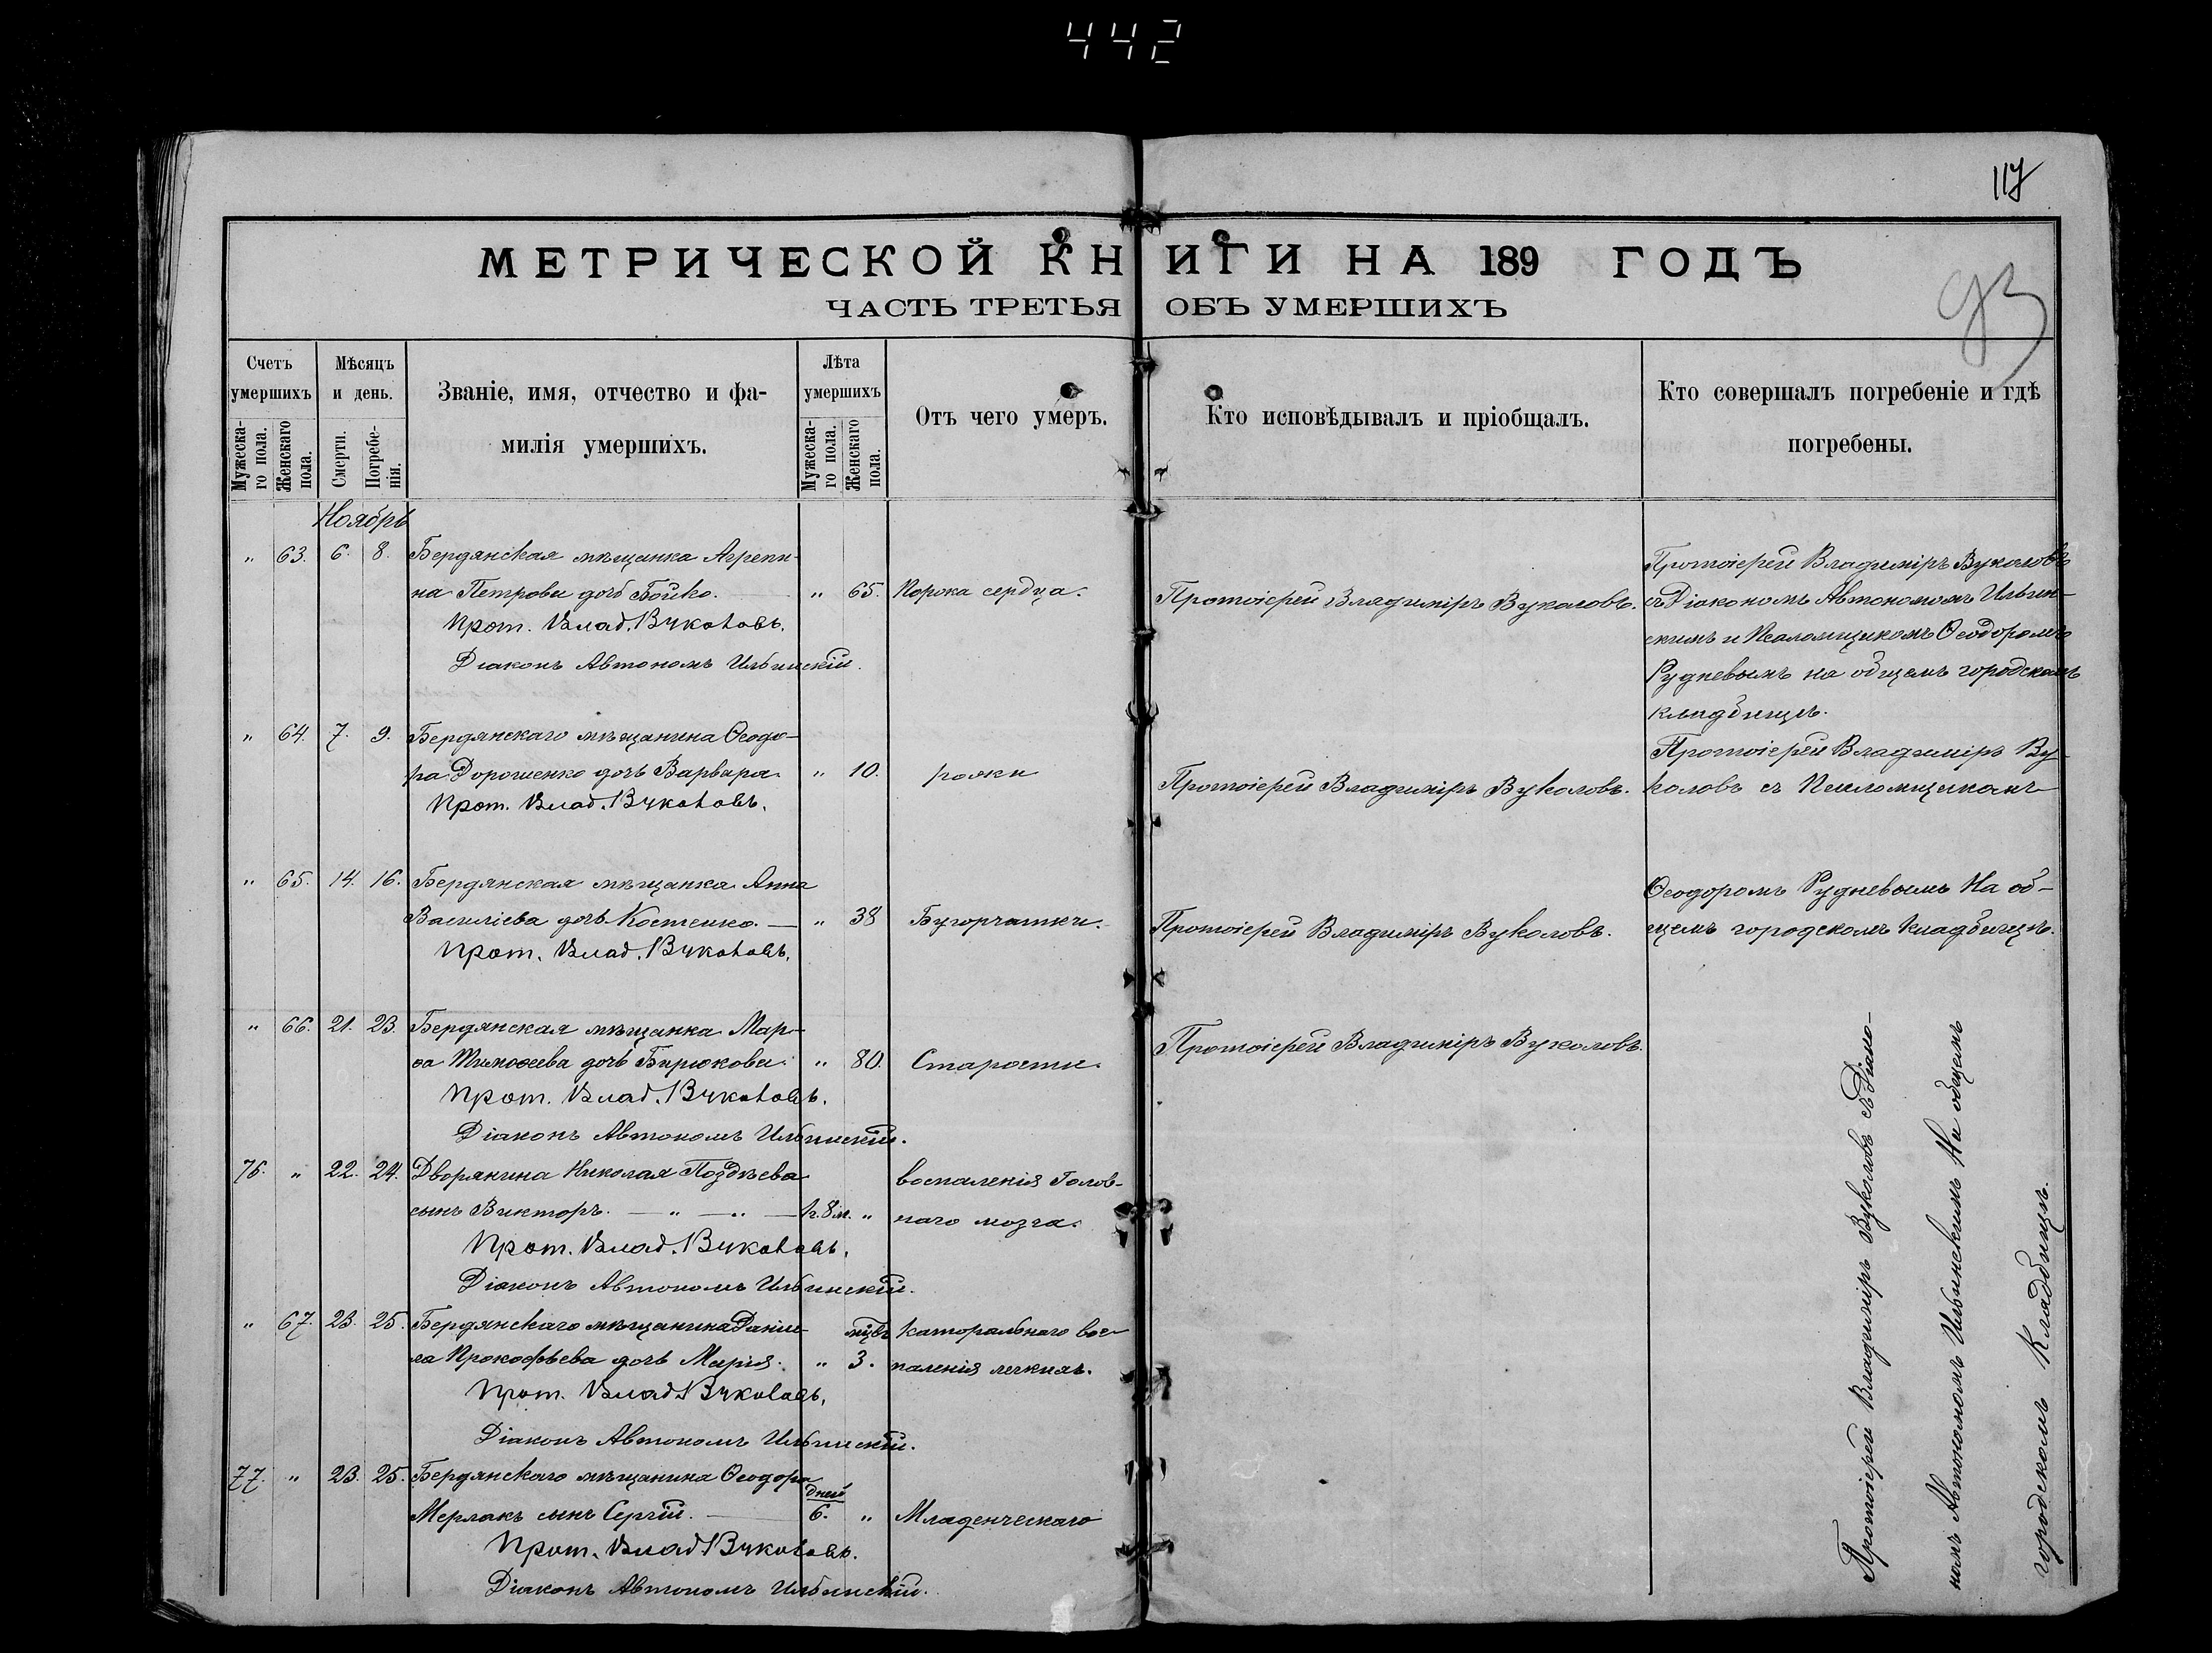 442
117
93
МЕТРИЧЕСКОЙ КНИГИ НА 189 ГОДЪ
ЧАСТЬ ТРЕТЬЯ ОБЪ УМЕРШИХЪ
Счетъ умершихъ.
Мужеска-го пола.
Женскаго пола.
Мѣсяцъ и день.
Смерти.
Погребе-нія.
Званіе, имя, отчество и фа-
милія умершихъ.
Лѣта умершихъ
Мужеска-го пола.
Женскаго пола.
Отъ чего умеръ.
Кто исповѣдывалъ и пріобщалъ.
Кто совершалъ погребеніе и гдѣ
погребены.
Ноябрь
„ 63. 6. 8. Бердянская мѣщанка Агрепи-
на Петрова дочь Бойко. „ 65. Порока сердца. Протоіерей Владиміръ Вуколовъ.
Прот. Влад. Вуколовъ.
Діаконъ Автономъ Ильинскій.
Протоіерей Владиміръ Вуколовъ
съ Діакономъ Автономомъ Ильин-
скимъ и Псаломщикомъ Ѳеодоромъ
Рудневымъ на общемъ городскомъ
кладбищѣ.
„ 64. 7. 9. Бердянскаго мѣщанина Ѳеодо-
ра Дорошенко дочь Варвара. „ 10. рожи Протоіерей Владиміръ Вуколовъ.
Прот. Влад. Вуколовъ.
Протоіерей Владиміръ Ву-
коловъ съ Псаломщикомъ
„ 65. 14. 16. Бердянская мѣщанка Анна
Василіева дочь Костенко. „ 38 Бугорчатки. Протоіерей Владиміръ Вуколовъ.
Прот. Влад. Вуколовъ.
Ѳеодоромъ Рудневымъ На об-
щемъ городскомъ кладбищѣ.
„ 66. 21. 23. Бердянская мѣщанка Мар-
ѳа Тимоѳеева дочь Бирюкова. „ 80. Старости. Протоіерей Владиміръ Вуколовъ.
Прот. Влад. Вуколовъ.
Діаконъ Автономъ Ильинскій.
76. „ 22. 24. Дворянина Николая Позднѣева воспаленія Голов-
сынъ Викторъ. — „ — „ — 1г. 8м. „ наго мозга.
Прот. Влад. Вуколовъ.
Діаконъ Автономъ Ильинскій.
„ 67. 23. 25. Бердянскаго мѣщанина Даніи- мцвъ каторальнаго вос-
ла Прокофьева дочь Марія. „ 3. паленія легкихъ.
Прот. Влад. Вуколовъ.
Діаконъ Автономъ Ильинскій.
77. „ 23. 25. Бердянскаго мѣщанина Ѳеодора дней
Мерлакъ сынъ Сергій. 6. „ Младенческаго
Прот. Влад. Вуколовъ.
Діаконъ Автономъ Ильинскій.
Протоіерей Владиміръ Вуколовъ съ Діако-
номъ Автономомъ Ильинскимъ На общемъ
городскомъ Кладбищѣ.